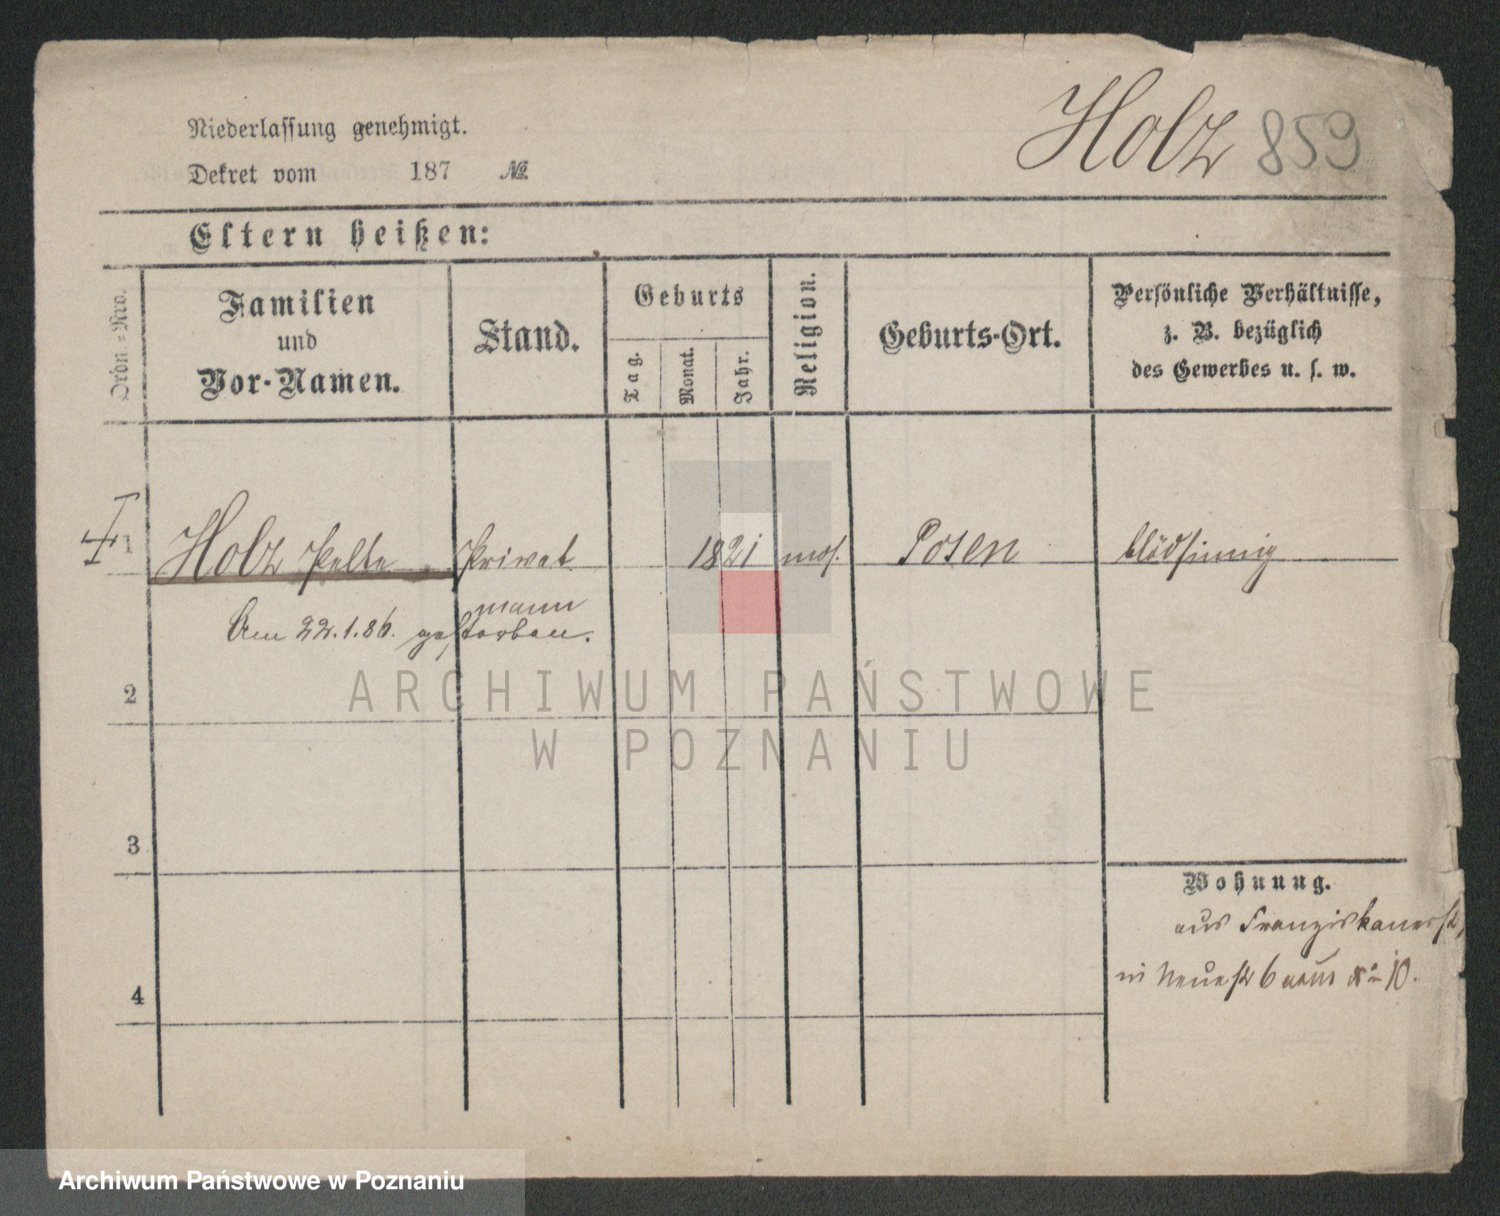 Holz 859
Niederlassung genehmigt.
Dekret vom 187 №
Eltern heißen:
Ordn.-Nro.
Familien
und
Vor-Namen.
Stand.
Geburts
Tag.
Monat.
Jahr.
Religion.
Geburts-Ort.
Persönliche Verhältnisse,
z. B. bezüglich
des Gewerbes u. s. w.
1 Holz Pelte Privat 1821 mos. Posen blödsinnig
mann
Am 22.1.86. gestorben.
2
3
4
Wohnung.
aus Franziskanerst,
in Neuest 6 10.
ARCHIWUM PAŃSTWOWE
W POZNANIU
Archiwum Państwowe w Poznaniu